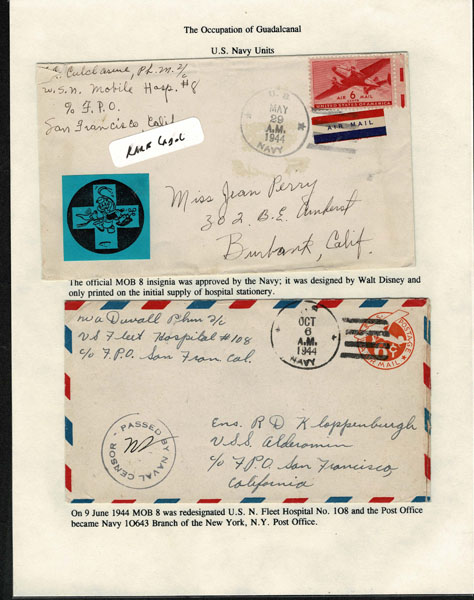 The Occupation of Guadalcanal
U.S. Navy Units
Culclasure, Ph.M. 2/c
U.S.N. Mobile Hosp. #8
% F.P.O.
San Francisco, Calif.
RARE
U.S.
MAY
29
A.M.
1944
NAVY
AIR 6¢ MAIL
UNITED STATES OF AMERICA
AIR MAIL
Miss Jean Perry
302 B.E. Amherst
Burbank, Calif.
The official MOB 8 insignia was approved by the Navy; it was designed by Walt Disney and
only printed on the initial supply of hospital stationery.
Duvall Phm 2/c
US Fleet Hospital #108
c/o F.P.O. San Fran Cal.
OCT
6
A.M.
1944
NAVY
POSTAGE
AIR MAIL
PASSED BY NAVAL CENSOR
Ens. R D Kloppenburgh
U.S.S. Alderamin
c/o F.P.O. San Francisco,
California
On 9 June 1944 MOB 8 was redesignated U.S. N. Fleet Hospital No. 1O8 and the Post Office
became Navy 1O643 Branch of the New York, N.Y. Post Office.